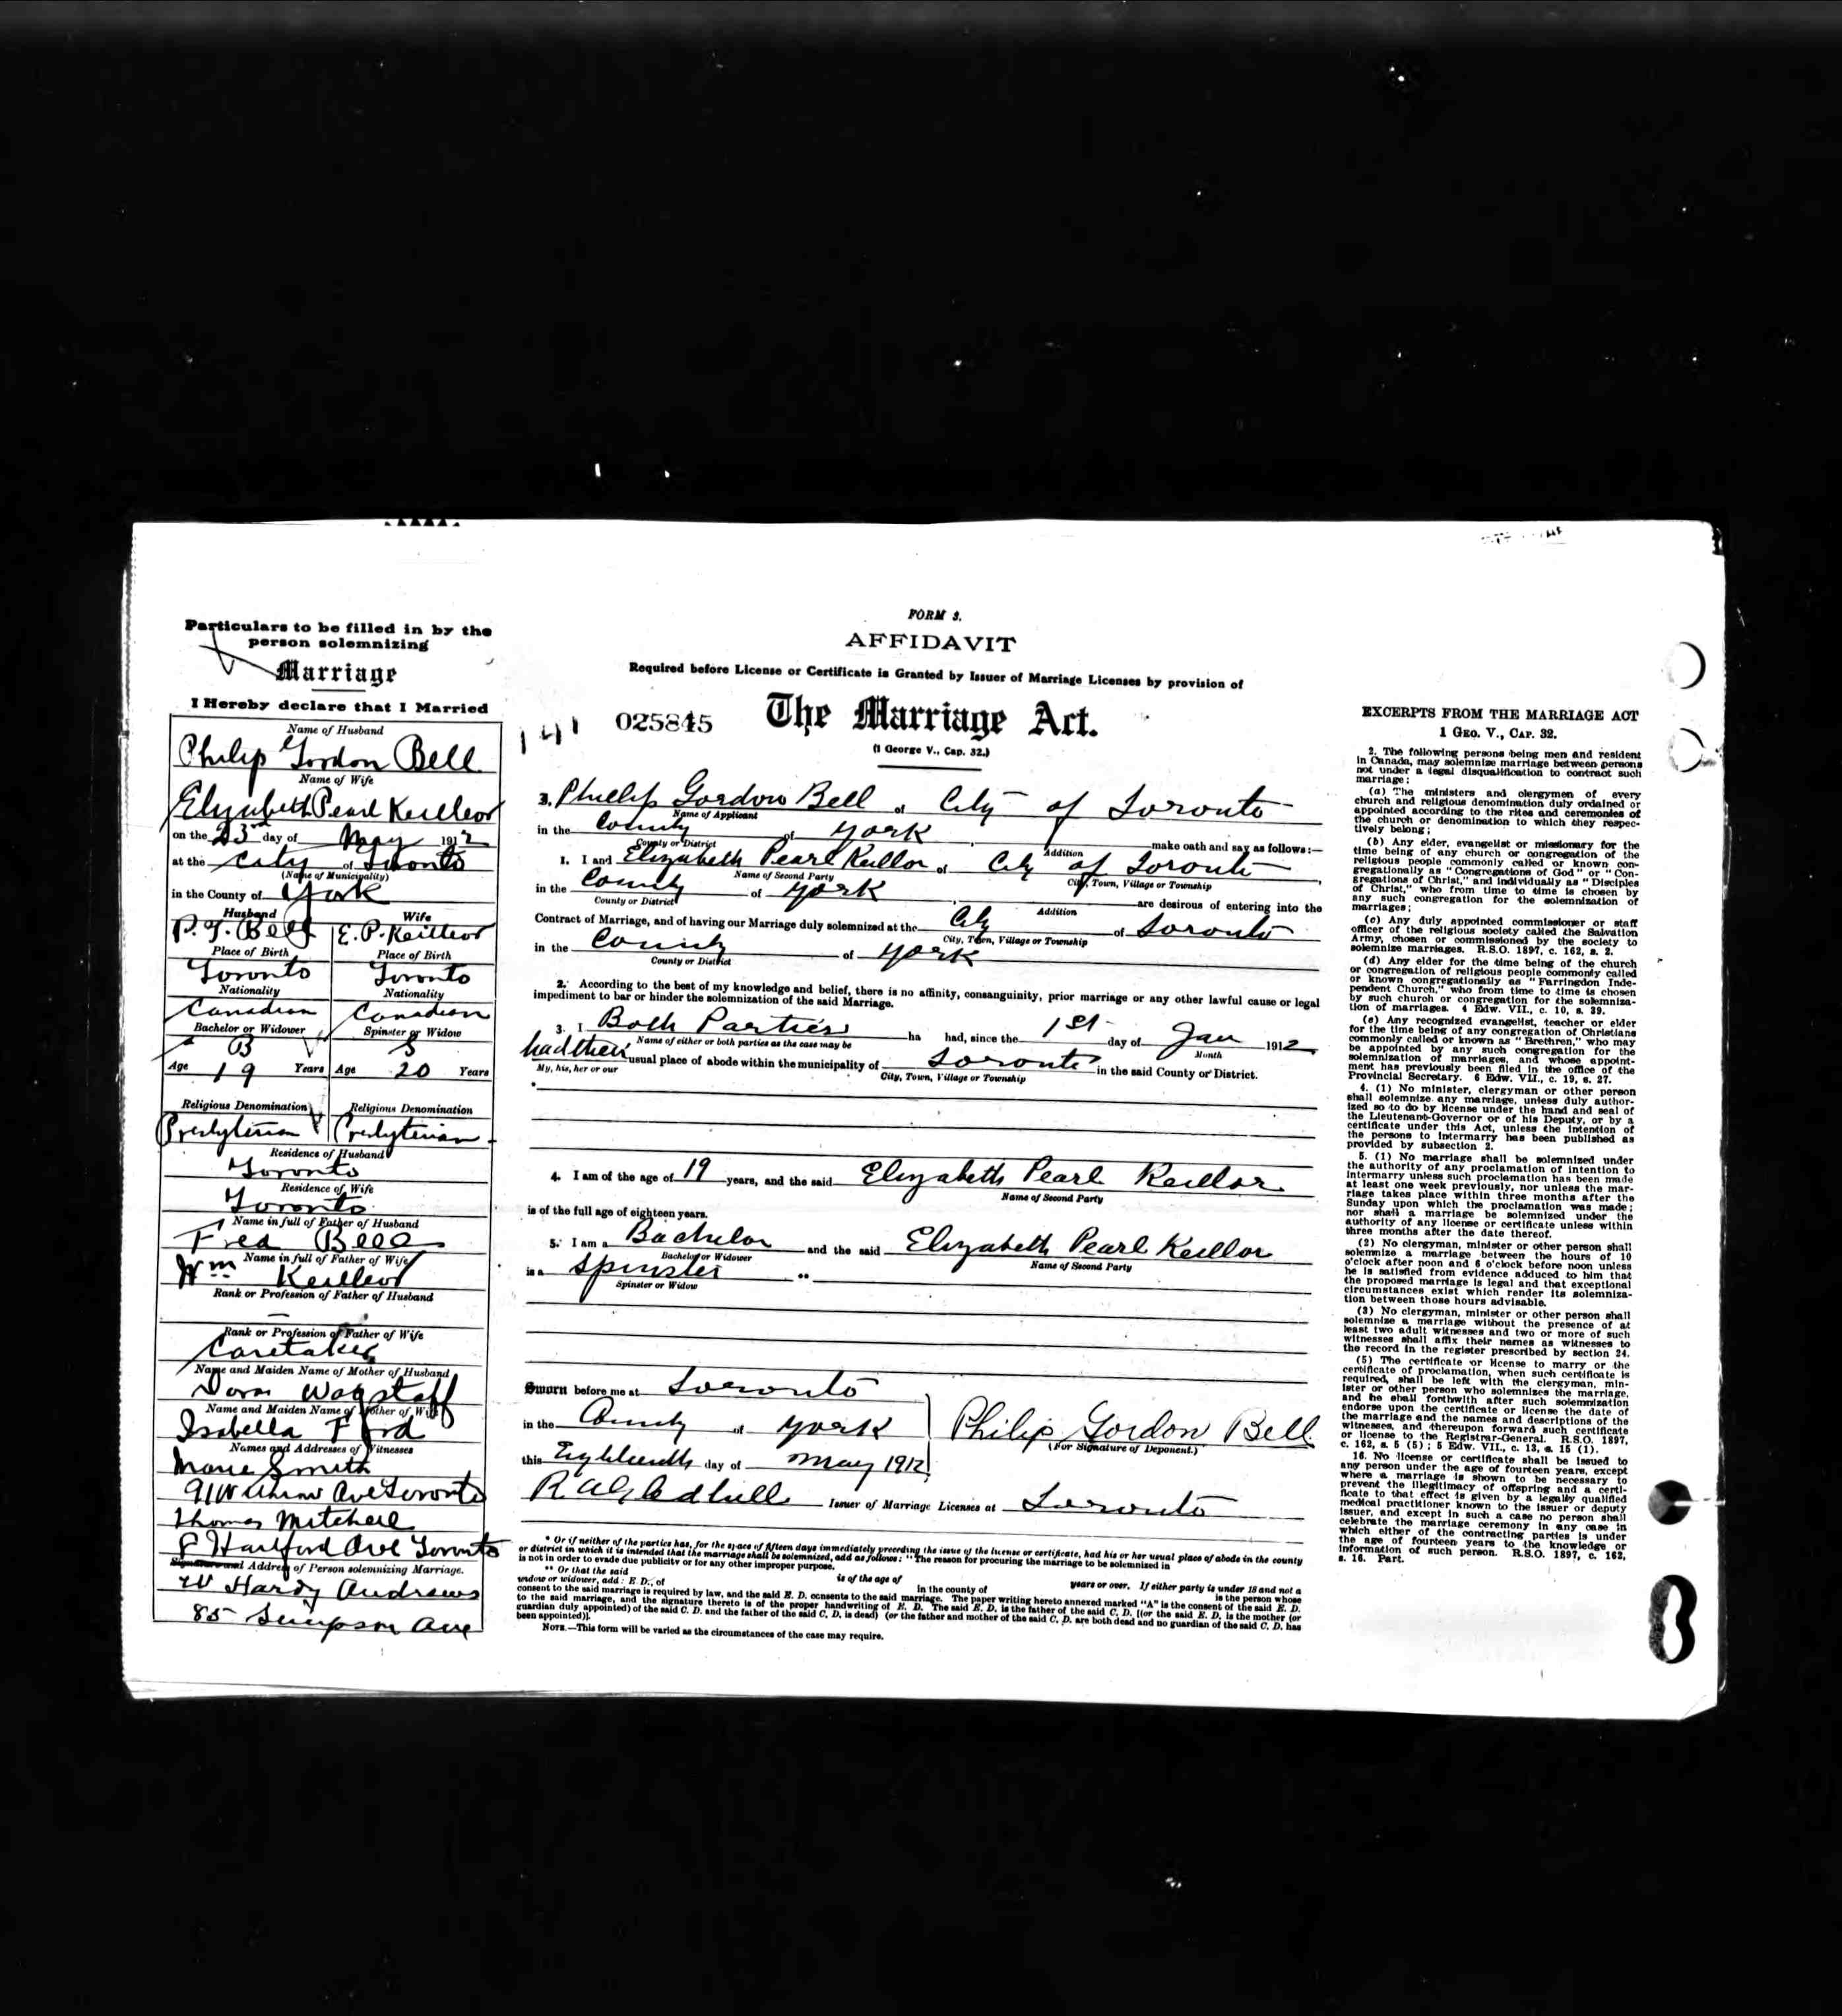 Particulars to be filled in by the
person solemnizing
Marriage
I Hereby declare that I Married
Name of Husband
Philip Gordon Bell
Name of Wife
Elizabeth Pearl Keilleor
on the 23rd day of May 1912
at the City of Toronto
(Name of Municipality)
in the County of York
Husband Wife
P. G. Bell E. P. Keilleor
Place of Birth Place of Birth
Toronto Toronto
Nationality Nationality
Canadian Canadian
Bachelor or Widower Spinster or Widow
B S
Age 19 Years Age 20 Years
Religious Denomination Religious Denomination
Presbyterian Presbyterian
Residence of Husband
Toronto
Residence of Wife
Toronto
Name in full of Father of Husband
Fred Bell
Name in full of Father of Wife
Wm Keilleor
Rank or Profession of Father of Husband
—
Rank or Profession of Father of Wife
Caretaker
Name and Maiden Name of Mother of Husband
Dora Wagstaff
Name and Maiden Name of Mother of Wife
Isabella Ford
Names and Addresses of Witnesses
Marie Smith
91 Ave Toronto
Thomas Mitchell
8 Hartford Ave Toronto
Signature and Address of Person solemnizing Marriage.
W Hardy Andrews
85 Simpson Ave
FORM 3.
AFFIDAVIT
Required before License or Certificate is Granted by Issuer of Marriage Licenses by provision of
141 025845 The Marriage Act.
(1 George V., Cap. 32.)
3. Phillip Gordon Bell of City of Toronto
Name of Applicant
in the County of York, make oath and say as follows:—
County or District Addition
1. I and Elizabeth Pearl Keillor of City of Toronto,
Name of Second Party City, Town, Village or Township
in the County of York, are desirous of entering into the
County or District Addition
Contract of Marriage, and of having our Marriage duly solemnized at the City of Toronto
City, Town, Village or Township
in the County of York
County or District
2. According to the best of my knowledge and belief, there is no affinity, consanguinity, prior marriage or any other lawful cause or legal
impediment to bar or hinder the solemnization of the said Marriage.
3. I Both Parties ha had, since the 1st day of Jan 1912
Name of either or both parties as the case may be Month
had their usual place of abode within the municipality of Toronto in the said County or District.
My, his, her or our City, Town, Village or Township
*
4. I am of the age of 19 years, and the said Elizabeth Pearl Keillor
Name of Second Party
is of the full age of eighteen years.
5. I am a Bachelor and the said Elizabeth Pearl Keillor
Bachelor or Widower Name of Second Party
is a Spinster **
Spinster or Widow
Sworn before me at Toronto
in the County of York
Philip Gordon Bell
(For Signature of Deponent.)
this Eighteenth day of May 1912
Issuer of Marriage Licenses at Toronto
* Or if neither of the parties has, for the space of fifteen days immediately preceding the issue of the license or certificate, had his or her usual place of abode in the county
or district in which it is intended that the marriage shall be solemnized, add as follows: "The reason for procuring the marriage to be solemnized in
is not in order to evade due publicity or for any other improper purpose.
** Or that the said is of the age of years or over. If either party is under 18 and not a
widow or widower, add: E. D., of in the county of is the person whose
consent to the said marriage is required by law, and the said E. D. consents to the said marriage. The paper writing hereto annexed marked "A" is the consent of the said E. D.
to the said marriage, and the signature thereto is of the proper handwriting of E. D. The said E. D. is the father of the said C. D. [(or the said E. D. is the mother (or
guardian duly appointed) of the said C. D. and the father of the said C. D. is dead) (or the father and mother of the said C. D. are both dead and no guardian of the said C. D. has
been appointed)].
NOTE.—This form will be varied as the circumstances of the case may require.
EXCERPTS FROM THE MARRIAGE ACT
1 GEO. V., CAP. 32.
2. The following persons being men and resident
in Canada, may solemnize marriage between persons
not under a legal disqualification to contract such
marriage:
(a) The ministers and clergymen of every
church and religious denomination duly ordained or
appointed according to the rites and ceremonies of
the church or denomination to which they respec-
tively belong;
(b) Any elder, evangelist or missionary for the
time being of any church or congregation of the
religious people commonly called or known con-
gregationally as "Congregations of God" or "Con-
gregations of Christ," and individually as "Disciples
of Christ," who from time to time is chosen by
any such congregation for the solemnization of
marriages;
(c) Any duly appointed commissioner or staff
officer of the religious society called the Salvation
Army, chosen or commissioned by the society to
solemnize marriages. R.S.O. 1897, c. 162, s. 2.
(d) Any elder for the time being of the church
or congregation of religious people commonly called
or known congregationally as "Farringdon Inde-
pendent Church," who from time to time is chosen
by such church or congregation for the solemniza-
tion of marriages. 4 Edw. VII., c. 10, s. 39.
(e) Any recognized evangelist, teacher or elder
for the time being of any congregation of Christians
commonly called or known as "Brethren," who may
be appointed by any such congregation for the
solemnization of marriages, and whose appoint-
ment has previously been filed in the office of the
Provincial Secretary. 6 Edw. VII., c. 19, s. 27.
4. (1) No minister, clergyman or other person
shall solemnize any marriage, unless duly author-
ized so to do by license under the hand and seal of
the Lieutenant-Governor or of his Deputy, or by a
certificate under this Act, unless the intention of
the persons to intermarry has been published as
provided by subsection 2.
5. (1) No marriage shall be solemnized under
the authority of any proclamation of intention to
intermarry unless such proclamation has been made
at least one week previously, nor unless the mar-
riage takes place within three months after the
Sunday upon which the proclamation was made;
nor shall a marriage be solemnized under the
authority of any license or certificate unless within
three months after the date thereof.
(2) No clergyman, minister or other person shall
solemnize a marriage between the hours of 10
o'clock after noon and 6 o'clock before noon unless
he is satisfied from evidence adduced to him that
the proposed marriage is legal and that exceptional
circumstances exist which render its solemniza-
tion between those hours advisable.
(3) No clergyman, minister or other person shall
solemnize a marriage without the presence of at
least two adult witnesses and two or more of such
witnesses shall affix their names as witnesses to
the record in the register prescribed by section 24.
(5) The certificate or license to marry or the
certificate of proclamation, when such certificate is
required, shall be left with the clergyman, min-
ister or other person who solemnizes the marriage,
and he shall forthwith after such solemnization
endorse upon the certificate or license the date of
the marriage and the names and descriptions of the
witnesses, and thereupon forward such certificate
or license to the Registrar-General. R.S.O. 1897,
c. 162, s. 5 (5); 5 Edw. VII., c. 13, s. 15 (1).
16. No license or certificate shall be issued to
any person under the age of fourteen years, except
where a marriage is shown to be necessary to
prevent the illegitimacy of offspring and a certi-
ficate to that effect is given by a legally qualified
medical practitioner known to the issuer or deputy
issuer, and except in such a case no person shall
celebrate the marriage ceremony in any case in
which either of the contracting parties is under
the age of fourteen years to the knowledge or
information of such person. R.S.O. 1897, c. 162,
s. 16. Part.